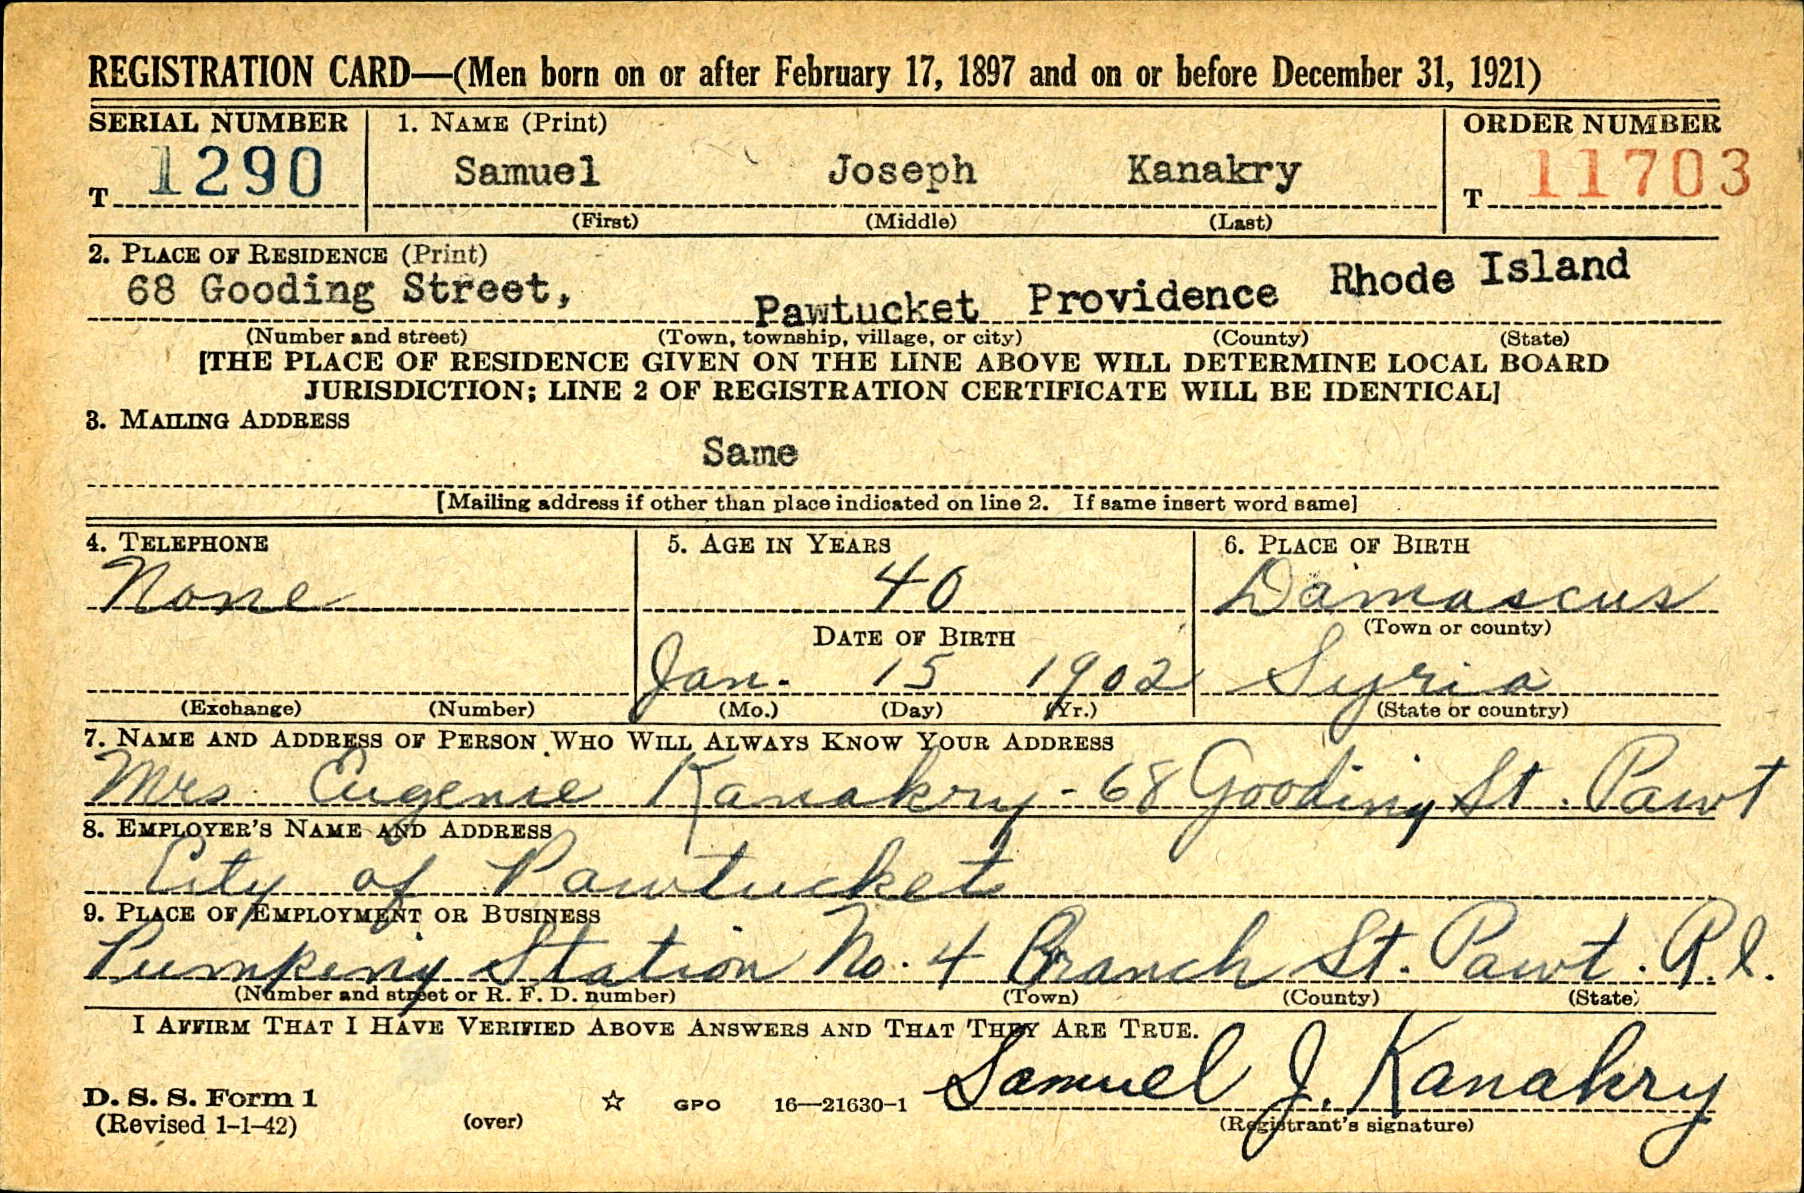 REGISTRATION CARD—(Men born on or after February 17, 1897 and on or before December 31, 1921)
SERIAL NUMBER 1. NAME (Print) ORDER NUMBER
T 1290 Samuel Joseph Kanakry T 11703
(First) (Middle) (Last)
2. PLACE OF RESIDENCE (Print)
68 Gooding Street, Pawtucket Providence Rhode Island
(Number and street) (Town, township, village, or city) (County) (State)
[THE PLACE OF RESIDENCE GIVEN ON THE LINE ABOVE WILL DETERMINE LOCAL BOARD
JURISDICTION; LINE 2 OF REGISTRATION CERTIFICATE WILL BE IDENTICAL]
3. MAILING ADDRESS
Same
[Mailing address if other than place indicated on line 2. If same insert word same]
4. TELEPHONE 5. AGE IN YEARS 6. PLACE OF BIRTH
None 40 Damascus
DATE OF BIRTH (Town or county)
Jan. 15 1902 Syria
(Exchange) (Number) (Mo.) (Day) (Yr.) (State or country)
7. NAME AND ADDRESS OF PERSON WHO WILL ALWAYS KNOW YOUR ADDRESS
Mrs. Eugenie Kanakry - 68 Gooding St. Pawt
8. EMPLOYER'S NAME AND ADDRESS
City of Pawtucket
9. PLACE OF EMPLOYMENT OR BUSINESS
Pumping Station No. 4 Branch St. Pawt. R.I.
(Number and street or R. F. D. number) (Town) (County) (State)
I AFFIRM THAT I HAVE VERIFIED ABOVE ANSWERS AND THAT THEY ARE TRUE.
Samuel J. Kanakry
D. S. S. Form 1 GPO 16—21630-1
(Revised 1-1-42) (over) (Registrant's signature)